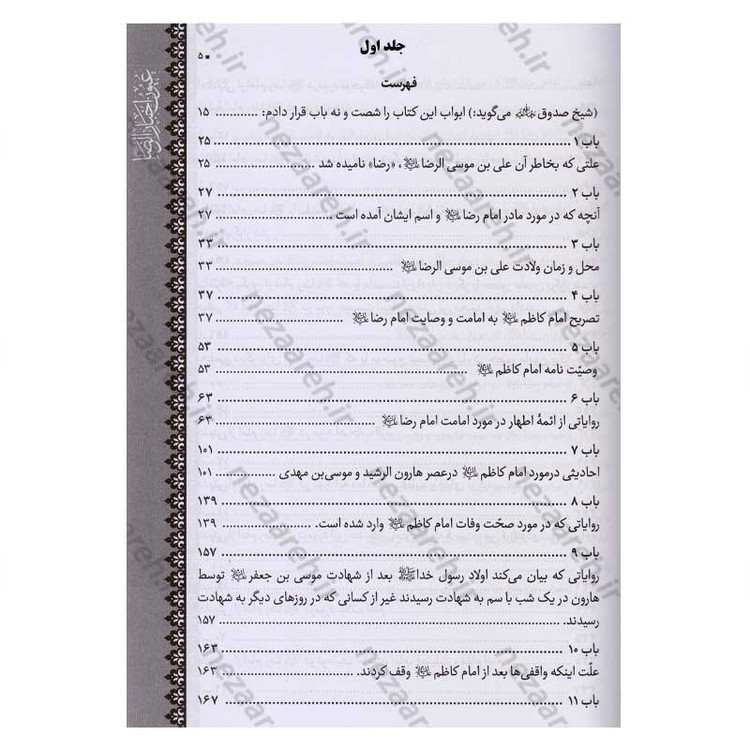 جلد اول
۵
فهرست
(شیخ صدوق می‌گوید:) ابواب این کتاب را شصت و نه باب قرار دادم: ............ ۱۵
باب ۱ ............ ۲۵
علتی که بخاطر آن علی بن موسی الرضا، «رضا» نامیده شد ............ ۲۵
باب ۲ ............ ۲۷
آنچه که در مورد مادر امام رضا و اسم ایشان آمده است ............ ۲۷
باب ۳ ............ ۳۳
محل و زمان ولادت علی بن موسی الرضا ............ ۳۳
باب ۴ ............ ۳۷
تصریح امام کاظم به امامت و وصایت امام رضا ............ ۳۷
باب ۵ ............ ۵۳
وصیّت نامه امام کاظم ............ ۵۳
باب ۶ ............ ۶۳
روایاتی از ائمهٔ اطهار در مورد امامت امام رضا ............ ۶۳
باب ۷ ............ ۱۰۱
احادیثی درمورد امام کاظم درعصر هارون الرشید و موسی‌بن مهدی ............ ۱۰۱
باب ۸ ............ ۱۳۹
روایاتی که در مورد صحّت وفات امام کاظم وارد شده است. ............ ۱۳۹
باب ۹ ............ ۱۵۷
روایاتی که بیان می‌کند اولاد رسول خدا بعد از شهادت موسی بن جعفر توسط
هارون در یک شب با سم به شهادت رسیدند غیر از کسانی که در روزهای دیگر به شهادت
رسیدند. ............ ۱۵۷
باب ۱۰ ............ ۱۶۳
علّت اینکه واقفی‌ها بعد از امام کاظم وقف کردند. ............ ۱۶۳
باب ۱۱ ............ ۱۶۷
عیون اخبار الرضا
nezaareh.ir